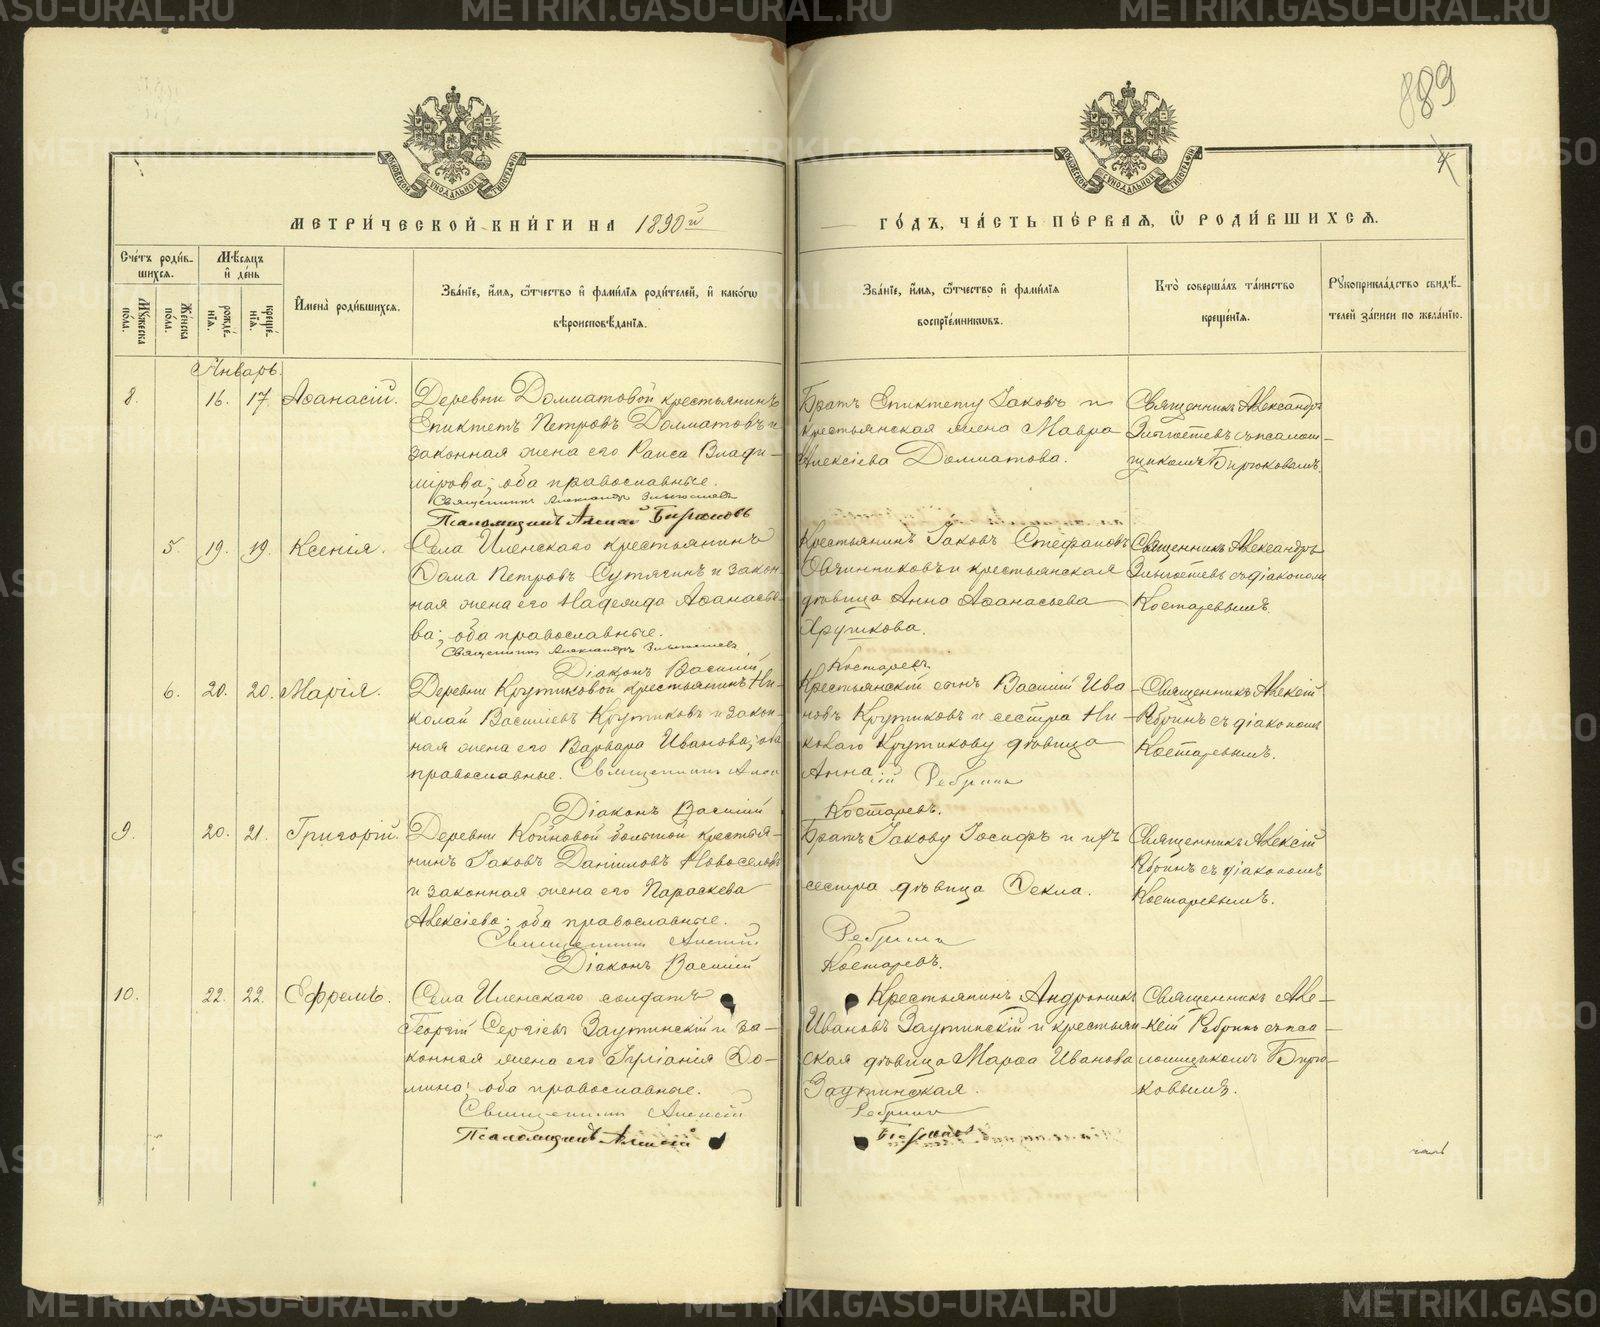 889
4
МЕТРИ́ЧЕСКОЙ КНИ́ГИ НА 1890й
ГО́ДЪ, ЧА́СТЬ ПЕ́РВАЯ, Ѿ РОДИ́ВШИХСЯ.
Сче́тъ роди́в-
шихся.
Мѣ́сяцъ
и де́нь
Мꙋ́жеска
по́ла.
Же́нска
по́ла.
рожде́-
нїя.
креще́-
нїя.
И҆мена̀ роди́вшихся.
Зва́нїе, и҆́мя, ѻ҆́тчество и҆ фами́лїя роди́телей, и҆ како́гѡ
вѣроисповѣ́данїя.
Зва́нїе, и҆́мя, ѻ҆́тчество и҆ фами́лїя
воспрїе́мникѡвъ.
Кто̀ соверша́лъ та́инство
креще́нїя.
Рꙋкоприкла́дство свидѣ́-
телей за́писи по жела́нїю.
Январь.
8. 16. 17. Аѳанасій.
Деревни Долматовой крестьянинъ
Епиктетъ Петровъ Долматовъ и
законная жена его Раиса Влади-
мірова; оба православные.
Священникъ Александръ
Псаломщикъ Алексій Бирюковъ
Братъ Епиктету Іаковъ и
крестьянская жена Мавра
Алексіева Долматова.
Священникъ Александръ
съ псалом-
щикомъ Бирюковымъ.
5. 19. 19. Ксенія.
Села Иленскаго крестьянинъ
Дома Петровъ Сутягинъ и закон-
ная жена его Надежда Аѳанасье-
ва; оба православные.
Священникъ Александръ
Діаконъ Василій
Крестьянинъ Іаковъ Стефановъ
Овчинниковъ и крестьянская
дѣвица Анна Аѳанасьева
Хрушкова.
Костаревъ.
Священникъ Александръ
съ діакономъ
Костаревымъ.
6. 20. 20. Марія.
Деревни Крутиковой крестьянинъ Ни-
колай Василіевъ Крутиковъ и закон-
ная жена его Варвара Иванова; оба
православные. Священникъ Алек
Крестьянскій сынъ Василій Ива-
новъ Крутиковъ и сестра Ни-
колаю Крутикову дѣвица
Анна
сій Ребринъ
Священникъ Алексій
Ребринъ съ діакономъ
Костаревымъ.
Діаконъ Василій
Костаревъ.
9. 20. 21. Григорій.
Деревни большой крестья-
нинъ Іаковъ Даніиловъ Новоселовъ
и законная жена его Параскева
Алексіева; оба православные.
Священникъ Алексій
Діаконъ Василій
Братъ Іакову Іосифъ и ихъ
сестра дѣвица Ѳекла.
Ребринъ
Костаревъ.
Священникъ Алексій
Ребринъ съ діакономъ
Костаревымъ.
10. 22. 22. Ефремъ.
Села Иленскаго солдатъ
Георгій Сергіевъ Заутинскій и за-
конная жена его Іуліанія До-
мнина; оба православные.
Священникъ Алексій
Псаломщикъ Алексій
Крестьянинъ Андроникъ
Ивановъ Заутинскій и крестьян-
ская дѣвица Марѳа Иванова
Заутинская.
Ребринъ
Бирюковъ
Священникъ Алек-
сій Ребринъ съ пса-
ломщикомъ Бирю-
ковымъ.
METRIKI.GASO-URAL.RU